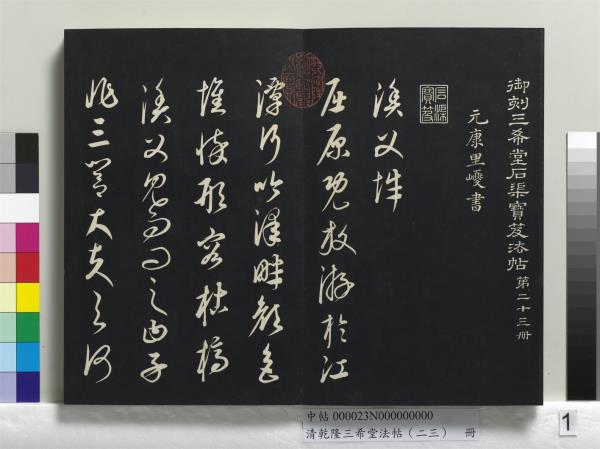 御刻三希堂石渠寶笈法帖 第二十三冊
元康里巎書
石渠寶笈
漁父辭
屈原既放游於江
潭行吟澤畔顏色
憔悴形容枯槁
漁父見而問之曰子
非三閭大夫與何
中帖 000023N000000000
清乾隆三希堂法帖（二三） 冊
1